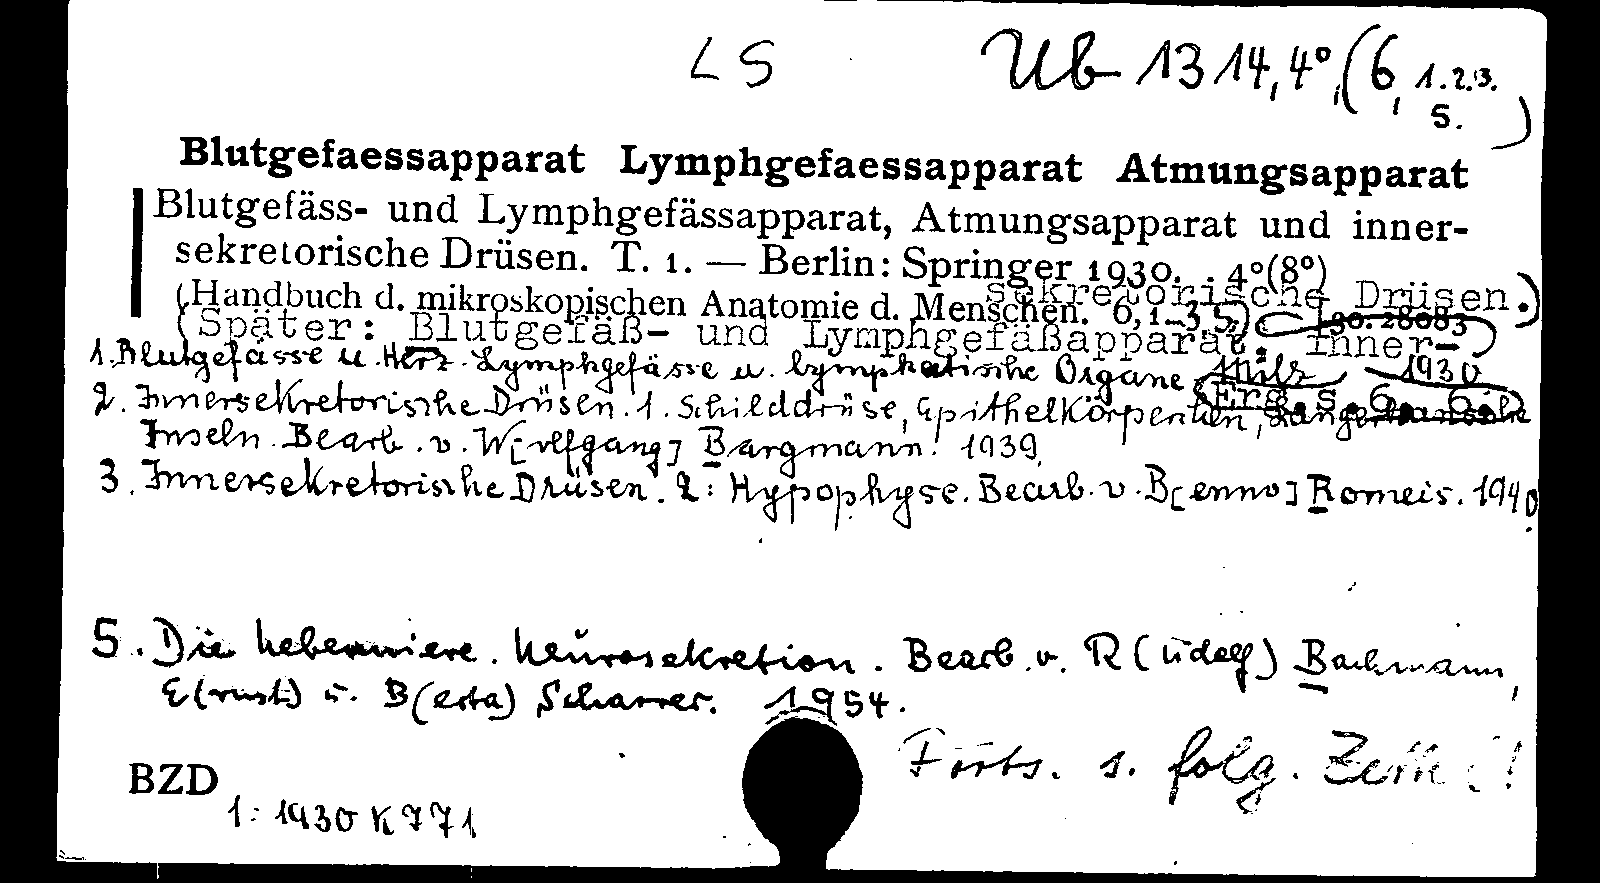 LS
Ub 1314,4°,(6, 1.2.3.
5.)
Blutgefaessapparat Lymphgefaessapparat Atmungsapparat
Blutgefäss- und Lymphgefässapparat, Atmungsapparat und inner-
sekretorische Drüsen. T. 1. — Berlin: Springer 1930. . 4°(8°)
(Handbuch d. mikroskopischen Anatomie d. Menschen. 6,1-3,5)
(Später: Blutgefäß- und Lymphgefäßapparat. Inner-
sekretorische Drüsen.)
1. Blutgefässe u. Herz. Lymphgefässe u. lymphatische Organe. Milz 1930
2. Innersekretorische Drüsen. 1. Schilddrüse, Epithelkörperchen, Langerhanssche
Inseln. Bearb. v. W[olfgang] Bargmann. 1939.
3. Innersekretorische Drüsen. 2: Hypophyse. Bearb. v. B[enno] Romeis. 1940.
5. Die Nebenniere. Neurosekretion. Bearb. v. R(udolf) Bachmann,
E(rnst) u. B(erta) Scharrer. 1954.
Forts. s. folg. Zettel!
BZD
1: 1930 K 771